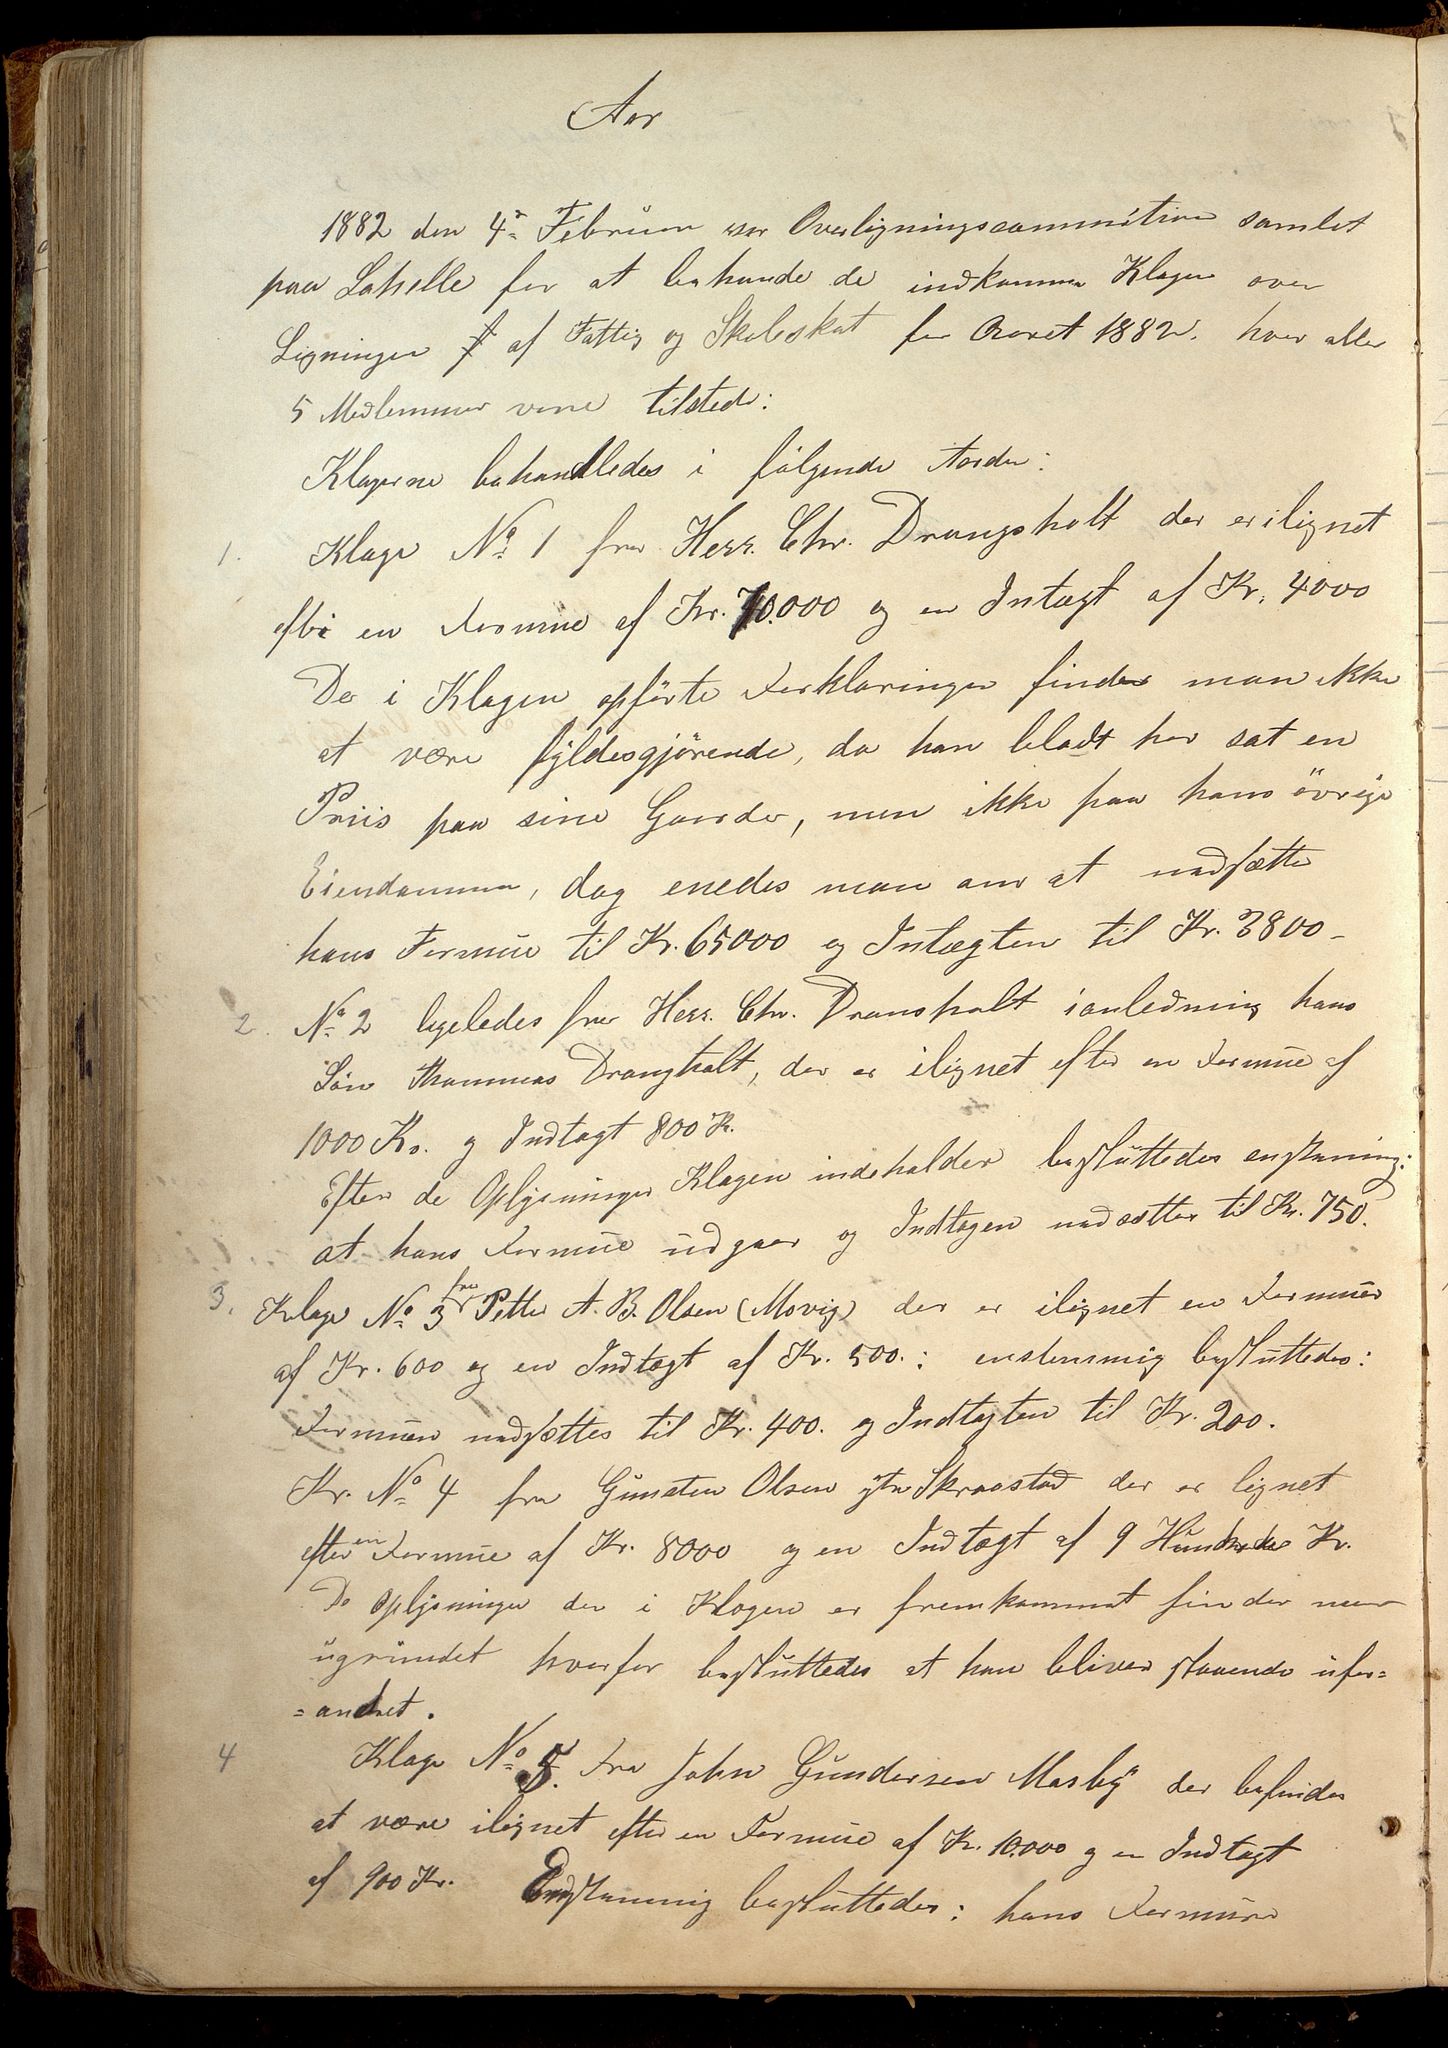 Aar
1882 den 4de Februar var Overligningscommitiven samlet
paa Lahelle for at behande de indkomne Klager over
Ligningen af Fattig og Skoleskat for Aaret 1882. hvor alle
5 Medlemmer vare tilstede:
Klagerne behandledes i følgende Aarden:
1. Klage No 1 fra Herr. Chr. Drangsholt der er ilignet
efter en Formue af Kr. 70.000 og en Intægt af Kr. 4000
De i Klagen opførte Forklaringer finder man ikke
at være fyldesgjørende, da han bladt har sat en
Priis paa sine Gaarder, men ikke paa hans øvrige
Eiendomme, dog enedes man om at nedsætte
hans Formue til Kr. 65000 og Intægten til Kr. 3800 -
2. No 2 ligeledes fra Herr. Chr. Dransholt i anledning hans
Søn Thommas Drangholt, der er ilignet efter en Formue af
1000 Kr. og Indtægt 800 Kr.
Efter de Oplysninger Klagen indeholder besluttedes enstemig:
at hans Formue udgaar og Indtægen nedsættes til Kr. 750.
3. Klage No 3 fra Petter A. B. Olsen (Movig) der er ilignet en Formue
af Kr. 600 og en Indtægt af Kr. 500.: enstemmig besluttedes:
Formuen nedsættes til Kr. 400. og Indtægten til Kr. 200.
Kr. No 4 fra Gunsten Olsen ytre Skraastad der er lignet
efter en Formue af Kr. 8000 og en Indtægt af 9 Hundrede Kr.
De Oplysninger der i Klagen er fremkommet finder man
ugrundet hvorfor besluttedes at han bliver staaende ufor=
=andret.
4 Klage No 5. Fra John Gundersen Mosby der befindes
at være ilignet efter en Formue af Kr. 10.000 og en Indtægt
af 900 Kr. Enstemmig besluttedes: hans Formue